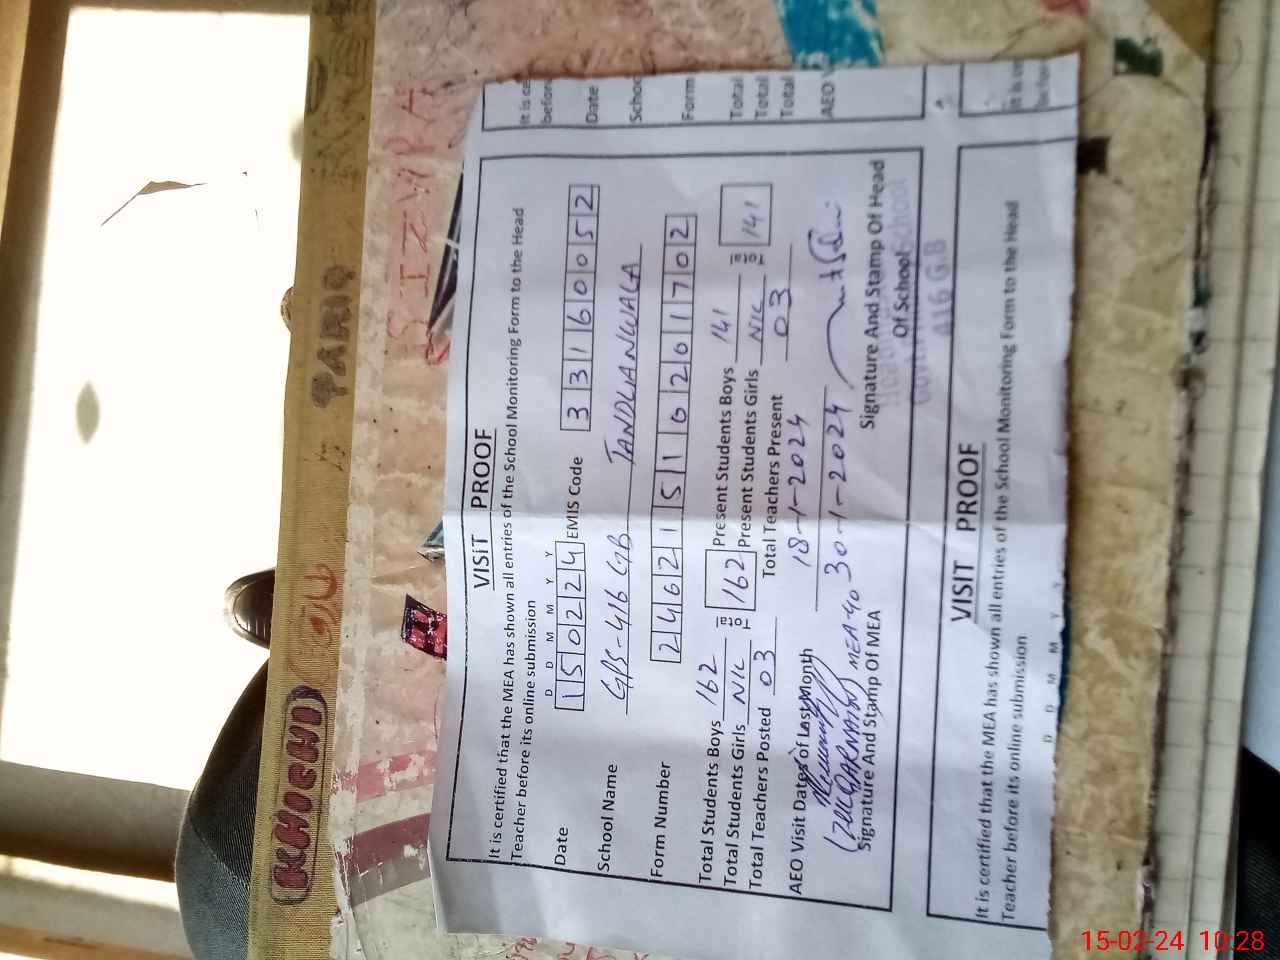 VISIT PROOF
It is certified that the MEA has shown all entries of the School Monitoring Form to the Head
Teacher before its online submission
D D M M Y Y
Date 150224 EMIS Code 33160052
School Name GPS-416 GB TANDLIANWALA
Form Number 24621516201702
Total Students Boys 162 Total 162 Present Students Boys 141 Total 141
Total Students Girls NIL Present Students Girls NIL
Total Teachers Posted 03 Total Teachers Present 03
AEO Visit Dates of Last Month 18-1-2024
30-1-2024
MEA-40
Signature And Stamp Of MEA
Signature And Stamp Of Head
Of School
School
416 G.B
VISIT PROOF
It is certified that the MEA has shown all entries of the School Monitoring Form to the Head
Teacher before its online submission
D D M M Y Y
It is ce
before
Date
Schoo
Form
Total
Total
Total
AEO V
TARIQ
15-02-24 10:28